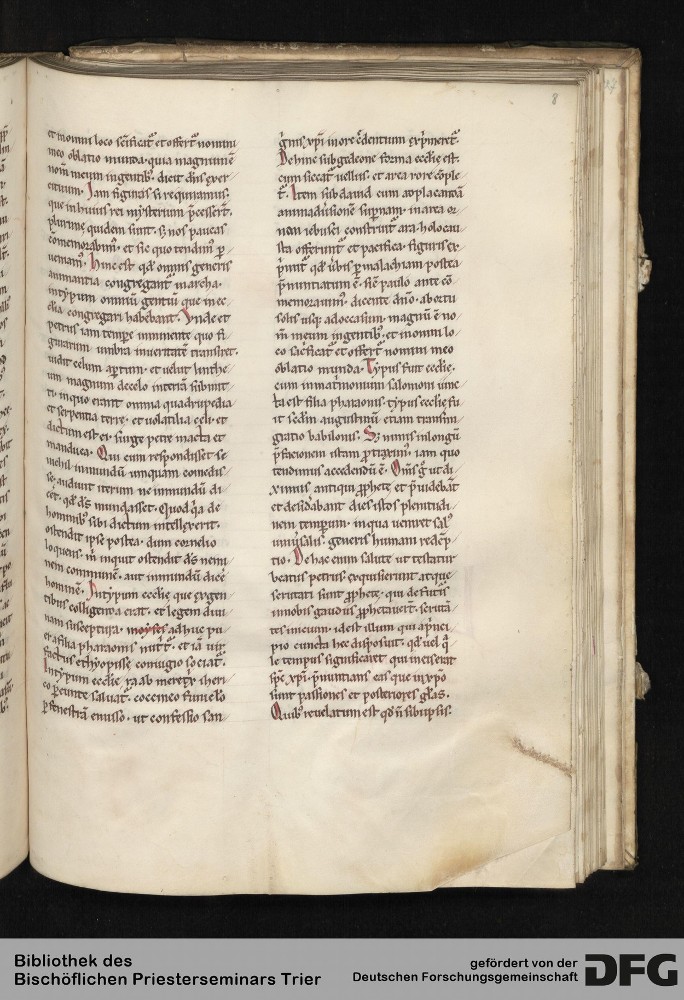 8
et in omni loco sc̄ificat᷑ et offert᷑ nomini
meo oblatio munda· quia magnum ē
nom̄ meum in gentib;· dicit dn̄s exer
cituum· Iam figuras si requiramus·
que in huius rei mysterium p̄cesser̄t·
plurime quidem sunt· sꝫ nos paucas
cōmemorabim᷒· et sic quo tendim᷒ ꝑ
ueniam᷒· Hinc est qđ omnis generis
animantia congregant᷑ in archa·
in typum omniū gentiū que in ec
cl̄ia congregari habebant· Unde et
petrus iam tempr̄e imminente quo fi
gurarum umbra in ueritatē transiret·
uidit celum aꝑtum· et uelut linthe
um magnum de celo in terrā submit
ti· in quo erant omnia quadrupedia
et serpentia terre· et uolatilia celi· et
dictum est ei· surge petre macta et
manduca· Qui cum respondisset se
nichil inmundū unquam comedis
se· audiuit iterum ne inmundū di
cer̄· qđ dꝰs mundasset· Quod q̇a de
hominib; sibi dictum intellexerit·
ostendit ipse postea· dum cornelio
loquens· m̄ inquit ostendit dꝰs nemi
nem commune· aut inmundū dicē
hominē· In typum eccl̄ie que ex gen
tibus colligenda erat· et legem diui
nam susceptura· moyses adhuc pu
er a filia pharaonis nut't᷑· et iā uir
factus ethyopisse coniugio sociat᷑·
In typum eccl̄ie raab meret̄x iheri
co ꝑeunte saluat᷑· coccineo funiclo
ꝑ fenestrā emisso· ut confessio san
guis xp̄i in ore c̄dentium exp̄meret᷑·
Dehinc sub gedeone forma eccl̄ie est·
cum siccat᷑ uellus· et area rore cōple
t᷑· Item sub dauid cum ad placandā
animaduersionē supnam· in area or
nan iebusei construit᷑ ara· holocau
sta offerunt᷑ et pacifica· figuris ex
p̄mit᷑ qđ uerbis ꝑ malachiam postea
p̄nuntiatum ē· s̄ē paulo ante cō
memorauim᷒· dicente dn̄o· ab ortu
solis usq; ad occasum· magnū ē no
m̄ meum in gentib;· et in omni lo
co sac̄ficat᷑ et offert᷑ nomini meo
oblatio munda· Typus fuit eccl̄ie·
cum in matrimonium salomoni iunc
ta est filia pharaonis· typus eccl̄ie fu
it sc̄dm augustinū· etiam transmi
gratio babilonis· Sꝫ nimis in longū
p̄facionem istam ꝓtraxim᷒· iam quo
tendimus accedendū ē· Om̄s g̊ ut di
ximus antiqui ꝓphete· et p̄uidebāt
et desidabant dies istos plenitudi
nem temporum· in qua ueniret sal᷒
uniu̓salis· generis humani redēp
tio· De hac enim salute ut testatur
beatus petrus· exquisierunt atque
scrutati sunt ꝓphete· qui de futuris
in nobis gaudiis ꝓphetauer̄t· scruta
tes in eum· id est illum qui a p̓nci
pio cuncta hec disposuit· qđ uel q̓
le tempus significaret· qui in eis erat
spc̄ xp̄i· p̄nuntians eas que in xp̄o
sunt passiones et posteriores gl̄as·
Quib; reuelatum est· qđ n̄ sibi ipsis·
Bibliothek des
Bischöflichen Priesterseminars Trier
gefördert von der
Deutschen Forschungsgemeinschaft DFG